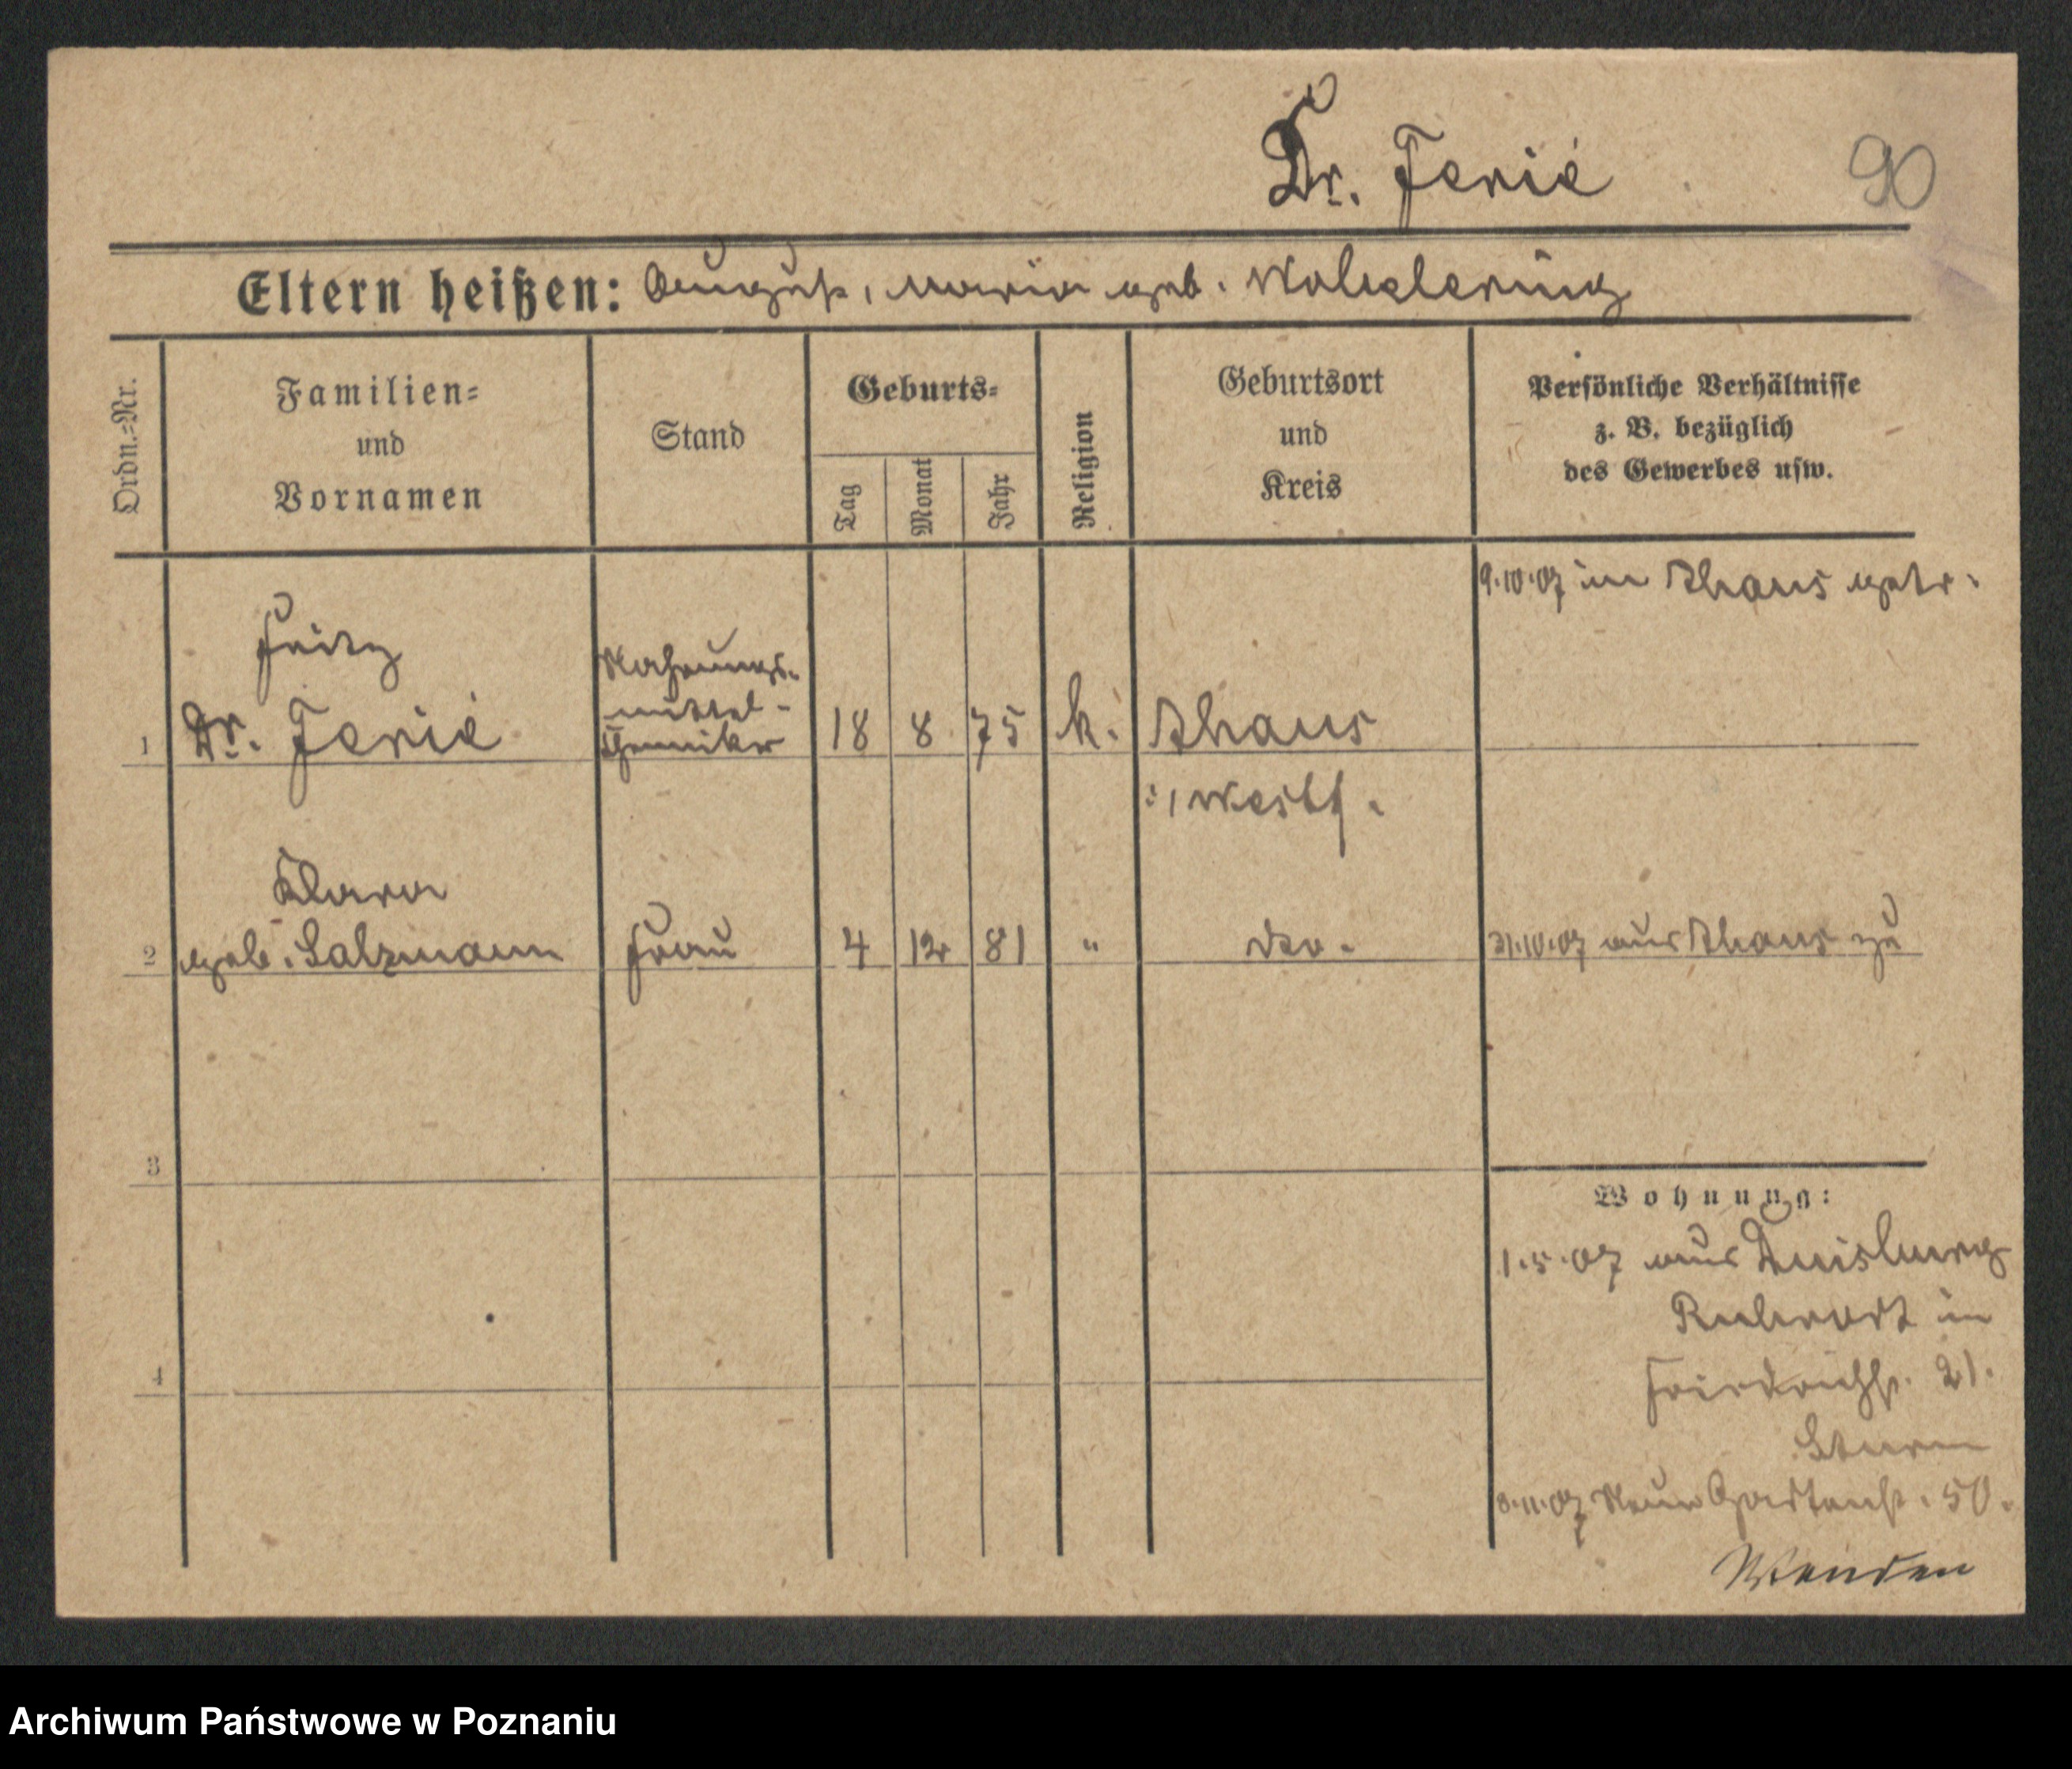 Dr. Ferié
90
Eltern heißen: August, Maria geb. Wolclering
Ordn.=Nr.
Familien=
und
Vornamen
Stand
Geburts=
Tag
Monat
Jahr
Religion
Geburtsort
und
Kreis
Persönliche Verhältnisse
z. B. bezüglich
des Gewerbes usw.
9.10.07 in Ahaus getr.
Fritz
1 Dr. Ferié
Nahrungs-
mittel-
Chemiker
18 8 75 k. Ahaus
i/Westf.
Klara
2 geb. Salzmann Frau 4 12 81 " dto. 31.10.07 aus Ahaus zu
3
4
Wohnung:
1.5.07 aus Duisburg
Ruhrort in
Friedrichstr. 21.
Sturm
8.11.07 Neue Gartenstr. 50.
Wenden
Archiwum Państwowe w Poznaniu